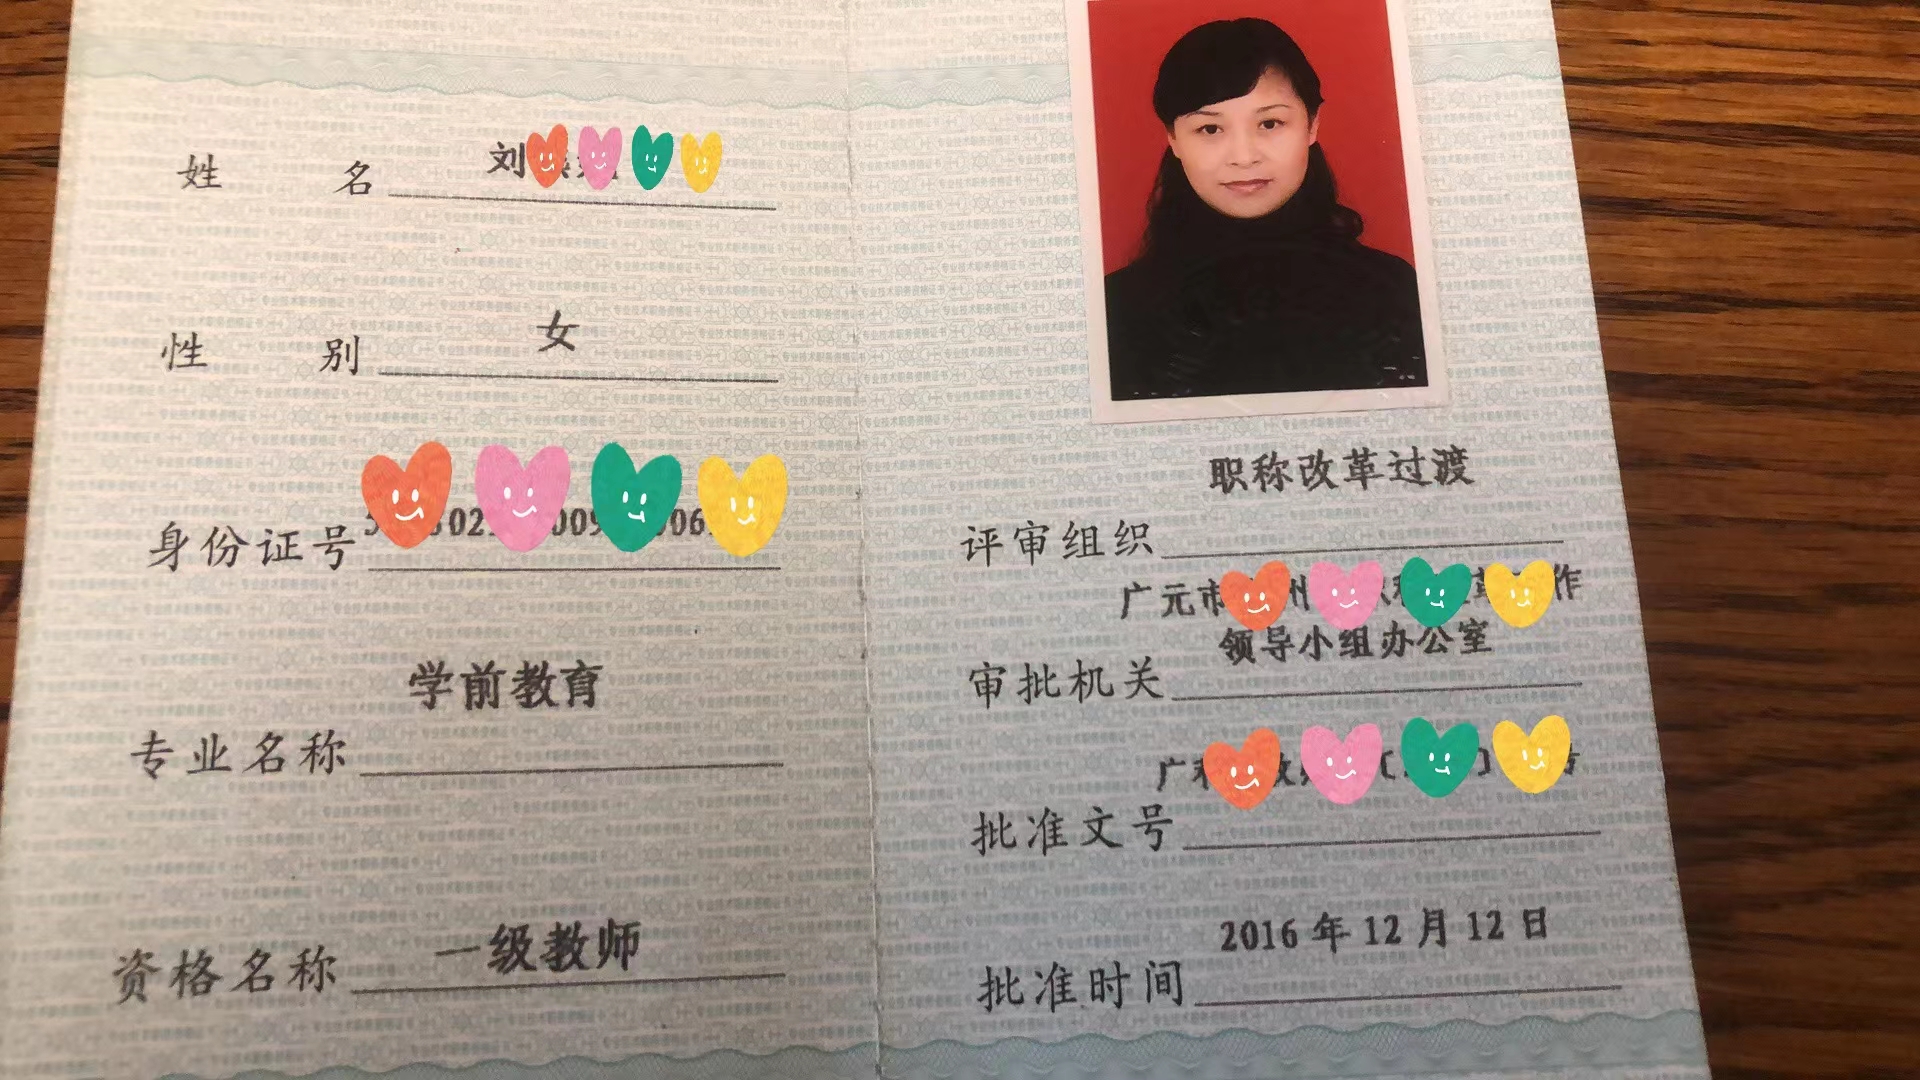 姓名 刘
性别 女
身份证号
专业名称 学前教育
资格名称 一级教师
评审组织 职称改革过渡
审批机关 广元市 州 作
领导小组办公室
批准文号 广
批准时间 2016年12月12日